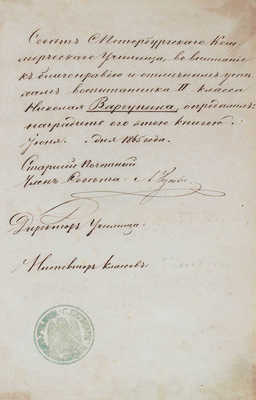 Советъ С.Петербургскаго Ком-
мерческаго Училища, во вниманіе
къ благонравію и отличнымъ успѣ-
хамъ воспитанника II класса
Николая Варгунина, опредѣлилъ:
наградить его этою книгою.
Іюня. дня 1865 года.
Старшій Почетный
Членъ Совѣта
Директоръ Училища.
Инспекторъ классовъ